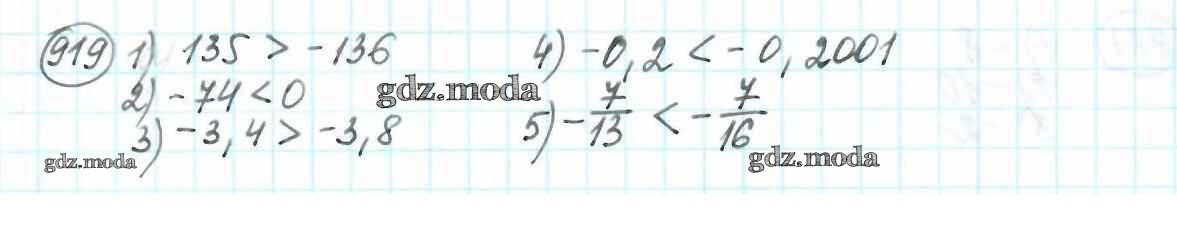 919 1) 135 > -136 4) -0,2 < -0,2001
2) -74 < 0 gdz.moda
3) -3,4 > -3,8 5) -7/13 < -7/16
gdz.moda gdz.moda